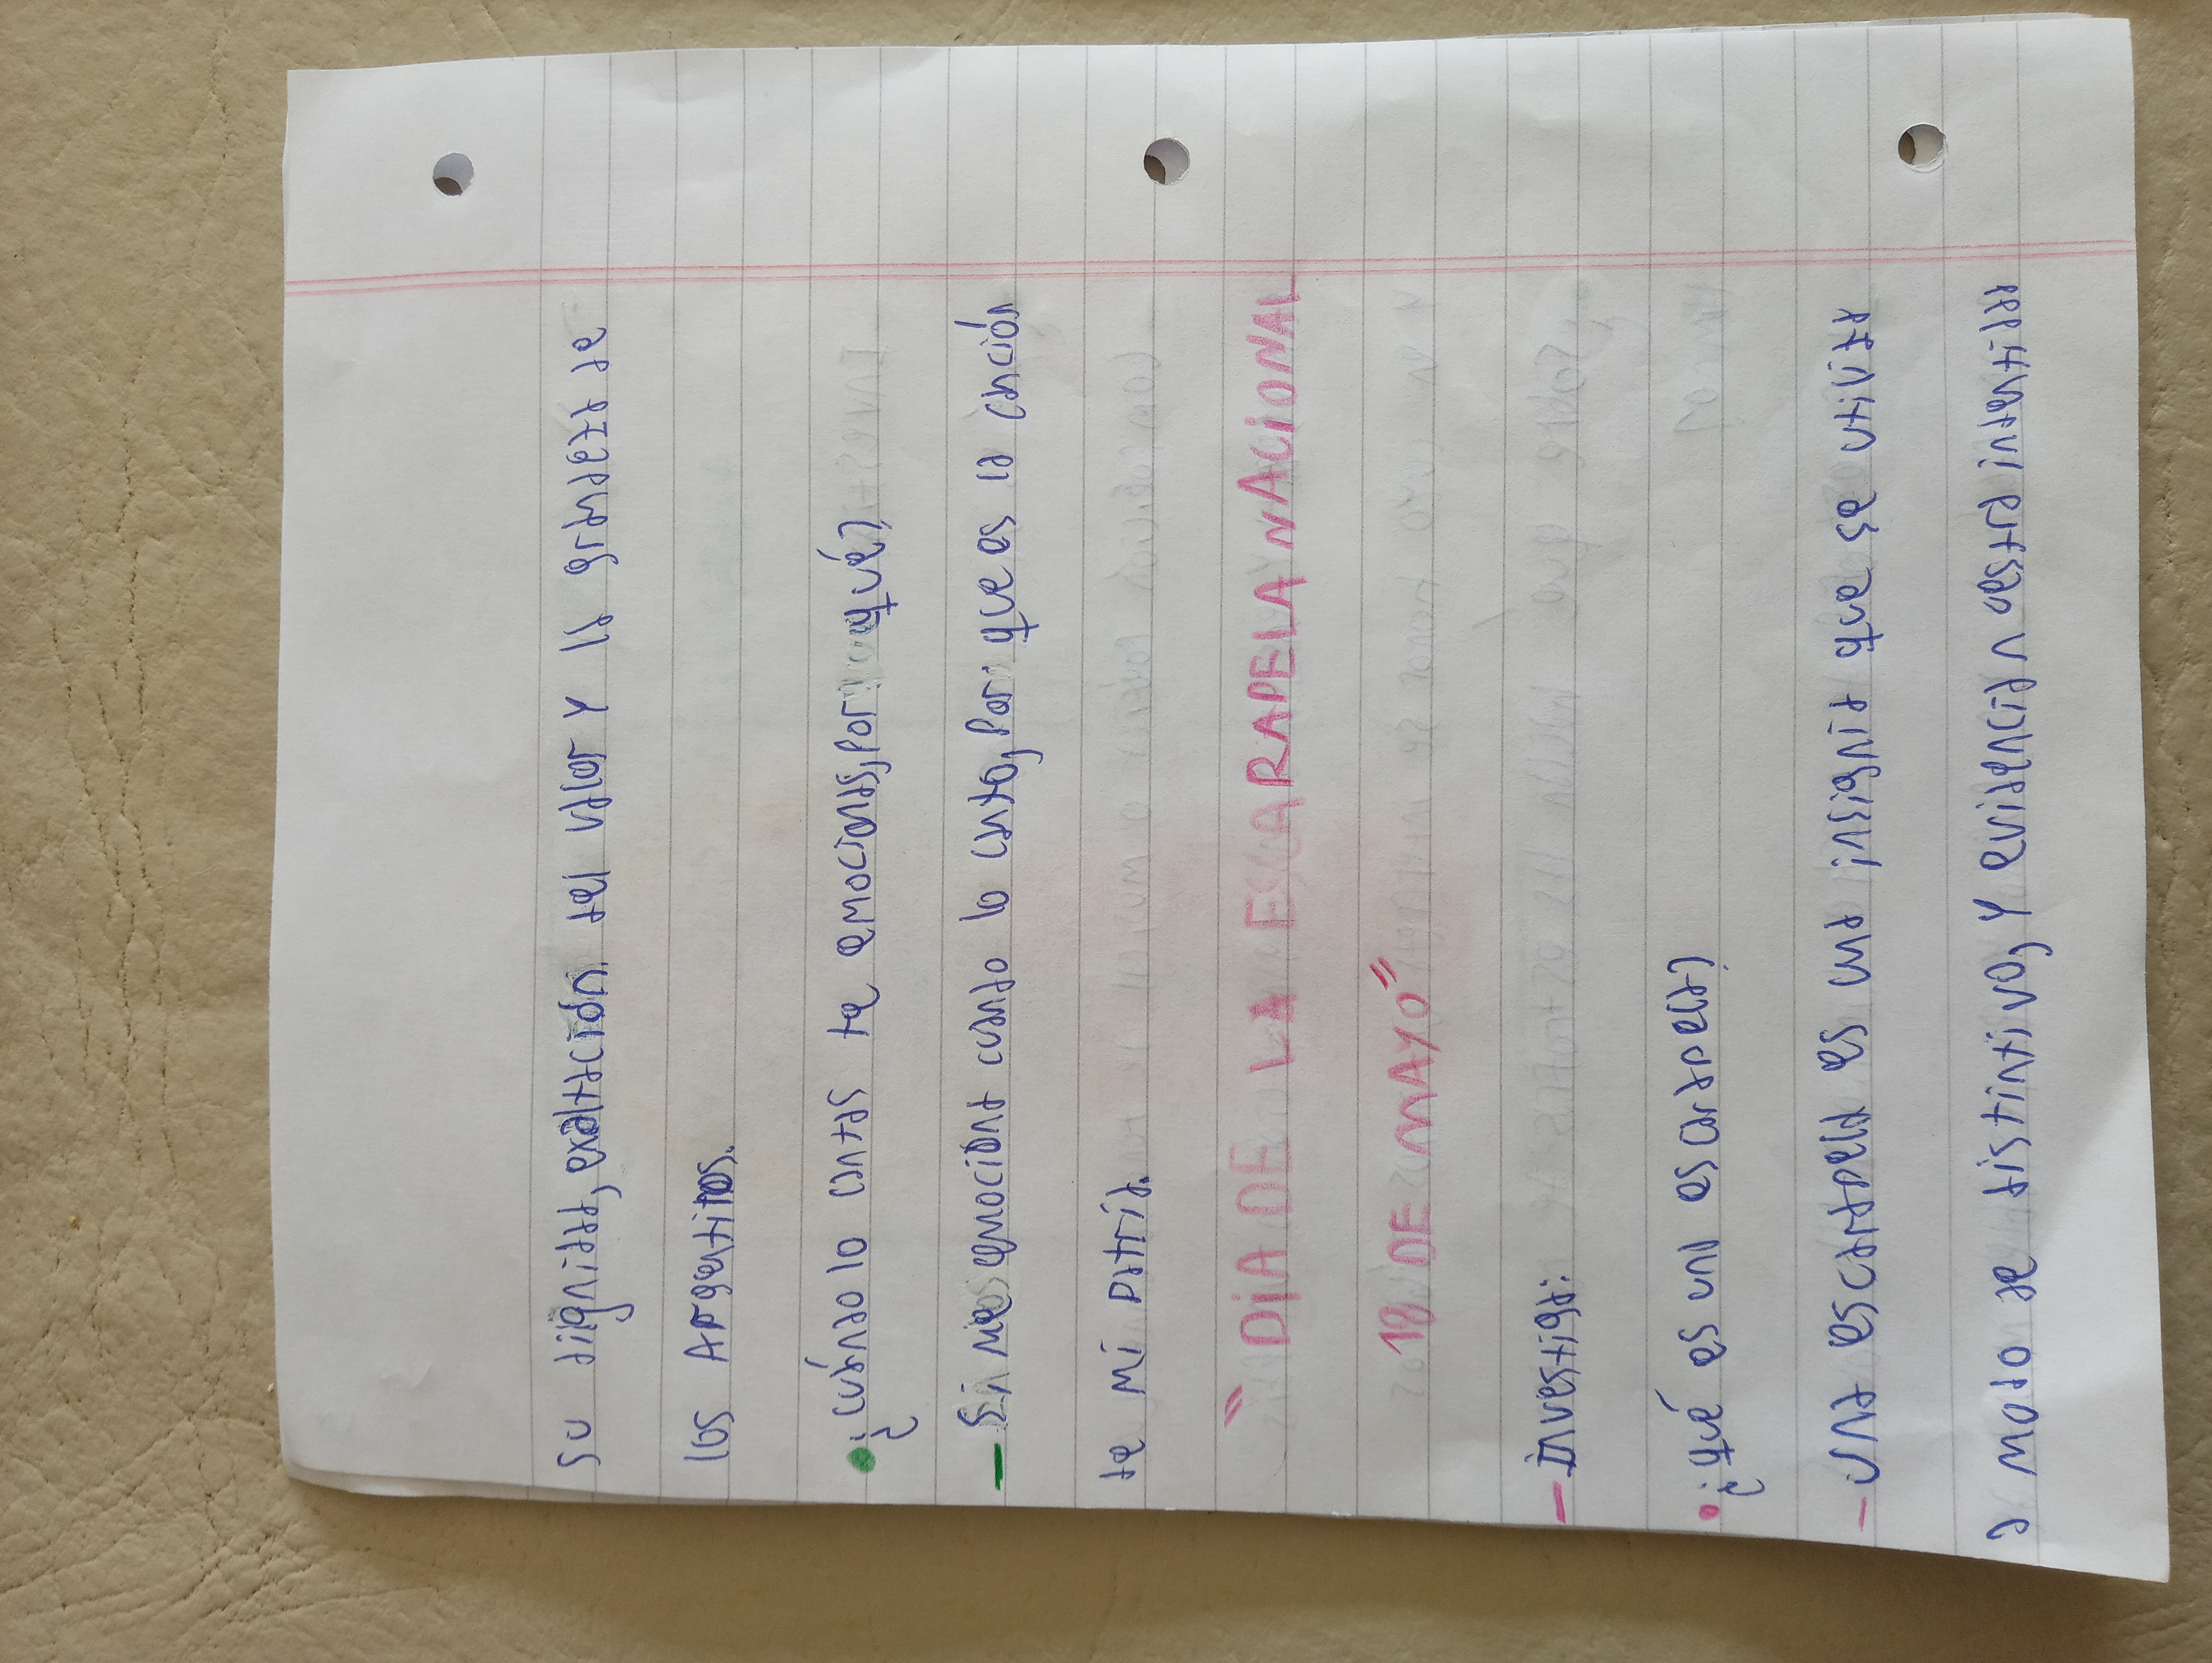 su dignidad, exaltación del valor y la grandeza de
los Argentinos.
¿cuándo lo cantas te emocionas? ¿por qué?
Si me emociona cuando lo canto, por que es la canción
de mi patria.
"DÍA DE LA ESCARAPELA NACIONAL
18 DE MAYO"
- Investiga:
• ¿qué es una escarapela?
- una escarapela es una insignia que se utiliza
a modo de distintivo, y evidencia nuestra